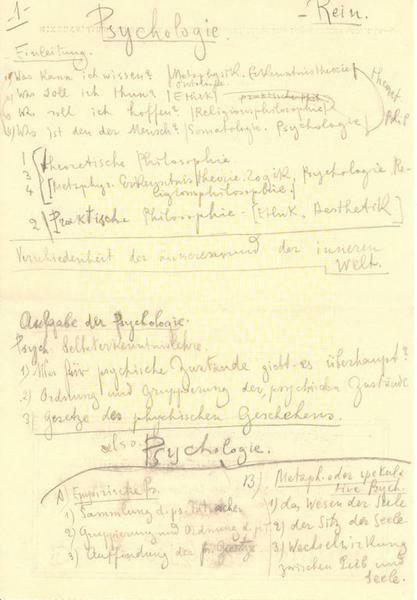 1-
Psychologie.
- Rein.
Einleitung.
Was kann ich wissen? [Metaphysik. Erkenntnistheorie
Was soll ich thun? [Ethik]
Was soll ich hoffen? [Religionsphilosophie]
Was ist den der Mensch? [Somatologie. Psychologie]
1 Theoretische Philosophie.
3
4 [Metaphys. Erkenntnistheorie. Logik, Psychologie, Religionsphilosophie.]
2 Praktische Philosophie - [Ethik. Aesthetik]
Verschiedenheit der äusseren und der inneren
Welt.
Aufgabe der Psychologie.
Psych. Selbsterkenntnislehre.
1) Was für psychische Zustände giebt es überhaupt?
2) Ordnung und Gruppierung der psychischen Zustände
3) Gesetze des psychischen Geschehens.
also
Psychologie.
A) Empirische Ps.
1) Sammlung d. ps. Tatsachen
2) Gruppierung und Ordnung d. ps. T
3) Auffindung der ps. Gesetze
B) Metaph. oder spekulative Psych.
1) das Wesen der Seele
2) der Sitz der Seele.
3) Wechselwirkung
zwischen Leib und
Seele.